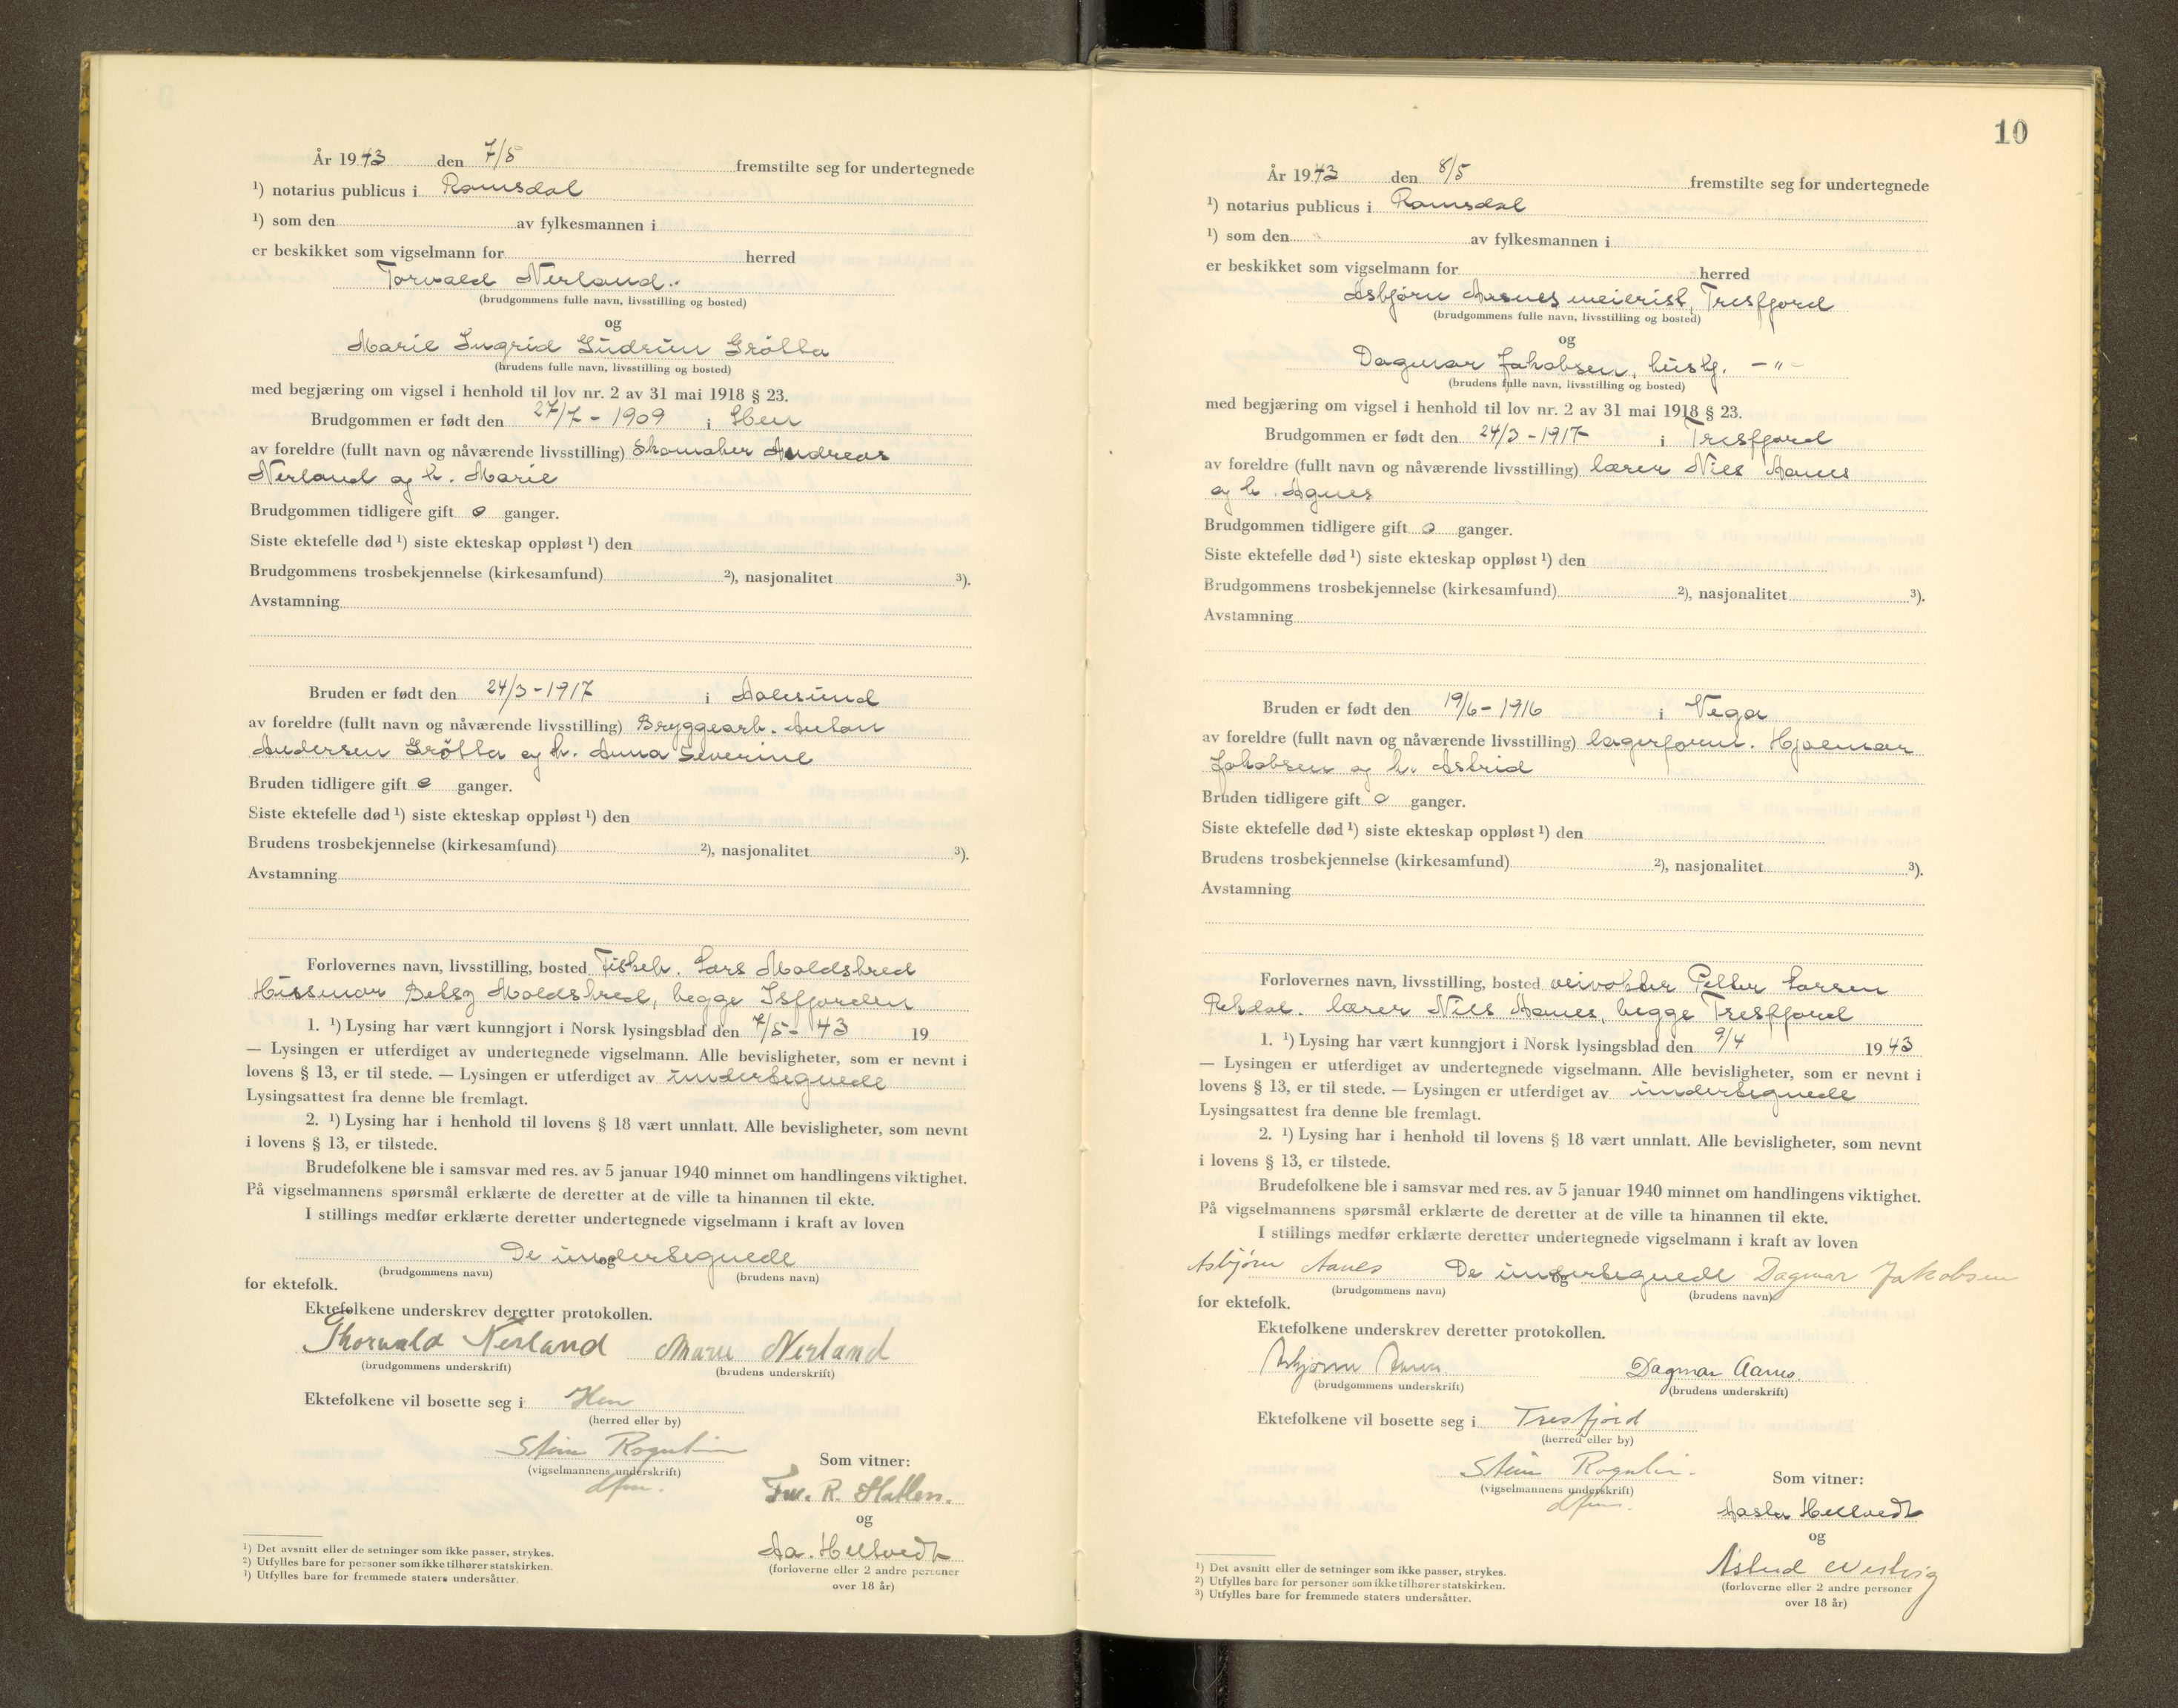 År 1943 den 7/5 fremstilte seg for undertegnede
¹) notarius publicus i Romsdal
¹) som den av fylkesmannen i
er beskikket som vigselmann for herred
Torvald Nerland.
(brudgommens fulle navn, livsstilling og bosted)
og
Marie Ingrid Gudrun Grötta
(brudens fulle navn, livsstilling og bosted)
med begjæring om vigsel i henhold til lov nr. 2 av 31 mai 1918 § 23.
Brudgommen er født den 27/7 - 1909 i Hen
av foreldre (fullt navn og nåværende livsstilling) Skomaker Andreas
Nerland og h. Marie
Brudgommen tidligere gift 0 ganger.
Siste ektefelle død ¹) siste ekteskap oppløst ¹) den
Brudgommens trosbekjennelse (kirkesamfund) ²), nasjonalitet ³).
Avstamning
Bruden er født den 24/3 - 1917 i Aalesund
av foreldre (fullt navn og nåværende livsstilling) Bryggearb. Anton
Andersen Grötta og h. Anna Severine
Bruden tidligere gift 0 ganger.
Siste ektefelle død ¹) siste ekteskap oppløst ¹) den
Brudens trosbekjennelse (kirkesamfund) ²), nasjonalitet ³).
Avstamning
Forlovernes navn, livsstilling, bosted Lars Moldskred
Moldskred, begge Isfjorden
1. ¹) Lysing har vært kunngjort i Norsk lysingsblad den 7/5 - 43 19
— Lysingen er utferdiget av undertegnede vigselmann. Alle bevisligheter, som er nevnt i
lovens § 13, er til stede. — Lysingen er utferdiget av undertegnede
Lysingsattest fra denne ble fremlagt.
2. ¹) Lysing har i henhold til lovens § 18 vært unnlatt. Alle bevisligheter, som nevnt
i lovens § 13, er tilstede.
Brudefolkene ble i samsvar med res. av 5 januar 1940 minnet om handlingens viktighet.
På vigselmannens spørsmål erklærte de deretter at de ville ta hinannen til ekte.
I stillings medfør erklærte deretter undertegnede vigselmann i kraft av loven
De undertegnede
og
(brudgommens navn) (brudens navn)
for ektefolk.
Ektefolkene underskrev deretter protokollen.
Thorvald Nerland Marie Nerland
(brudgommens underskrift) (brudens underskrift)
Ektefolkene vil bosette seg i Hen
(herred eller by)
Stein Rognlien
(vigselmannens underskrift)
dfm.
Som vitner:
R. Hatlen.
og
Aa. Heltvedt
(forloverne eller 2 andre personer
over 18 år)
¹) Det avsnitt eller de setninger som ikke passer, strykes.
²) Utfylles bare for personer som ikke tilhører statskirken.
³) Utfylles bare for fremmede staters undersåtter.
10
År 1943 den 8/5 fremstilte seg for undertegnede
¹) notarius publicus i Romsdal
¹) som den av fylkesmannen i
er beskikket som vigselmann for herred
Asbjørn Aanes meierist, Tresfjord
(brudgommens fulle navn, livsstilling og bosted)
og
Dagmar Jakobsen, hush. - " -
(brudens fulle navn, livsstilling og bosted)
med begjæring om vigsel i henhold til lov nr. 2 av 31 mai 1918 § 23.
Brudgommen er født den 24/3 - 1917 i Tresfjord
av foreldre (fullt navn og nåværende livsstilling) lærer Nils Aanes
og h. Agnes
Brudgommen tidligere gift 0 ganger.
Siste ektefelle død ¹) siste ekteskap oppløst ¹) den
Brudgommens trosbekjennelse (kirkesamfund) ²), nasjonalitet ³).
Avstamning
Bruden er født den 19/6 - 1916 i Vega
av foreldre (fullt navn og nåværende livsstilling) lagerform. Hjalmar
Jakobsen og h. Astrid
Bruden tidligere gift 0 ganger.
Siste ektefelle død ¹) siste ekteskap oppløst ¹) den
Brudens trosbekjennelse (kirkesamfund) ²), nasjonalitet ³).
Avstamning
Forlovernes navn, livsstilling, bosted veivokter Petter Larsen
Rekdal. lærer Nils Aanes, begge Tresfjord
1. ¹) Lysing har vært kunngjort i Norsk lysingsblad den 9/4 1943
— Lysingen er utferdiget av undertegnede vigselmann. Alle bevisligheter, som er nevnt i
lovens § 13, er til stede. — Lysingen er utferdiget av undertegnede
Lysingsattest fra denne ble fremlagt.
2. ¹) Lysing har i henhold til lovens § 18 vært unnlatt. Alle bevisligheter, som nevnt
i lovens § 13, er tilstede.
Brudefolkene ble i samsvar med res. av 5 januar 1940 minnet om handlingens viktighet.
På vigselmannens spørsmål erklærte de deretter at de ville ta hinannen til ekte.
I stillings medfør erklærte deretter undertegnede vigselmann i kraft av loven
Asbjørn Aanes De undertegnede Dagmar Jakobsen
og
(brudgommens navn) (brudens navn)
for ektefolk.
Ektefolkene underskrev deretter protokollen.
Asbjørn Aanes Dagmar Aanes.
(brudgommens underskrift) (brudens underskrift)
Ektefolkene vil bosette seg i Tresfjord
(herred eller by)
Stein Rognlien.
(vigselmannens underskrift)
dfm.
Som vitner:
Aaslu Heltvedt
og
Astrid
(forloverne eller 2 andre personer
over 18 år)
¹) Det avsnitt eller de setninger som ikke passer, strykes.
²) Utfylles bare for personer som ikke tilhører statskirken.
³) Utfylles bare for fremmede staters undersåtter.